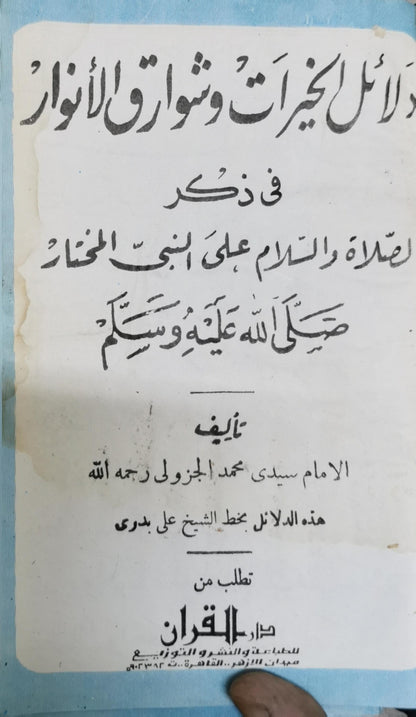 دلائل الخيرات وشوارق الأنوار
فى ذكر
لصلاة والسلام على النبى المختار
صَلَّى اللهُ عَلَيْهِ وَسَلَّمَ
تأليف
الامام سيدى محمد الجزولى رحمه الله
هذه الدلائل بخط الشيخ على بدوى
تطلب من
دار القران
للطباعة والنشر والتوزيع
ميدان الازهر .. القاهرة .. ت ٩٠٢٣٨٢